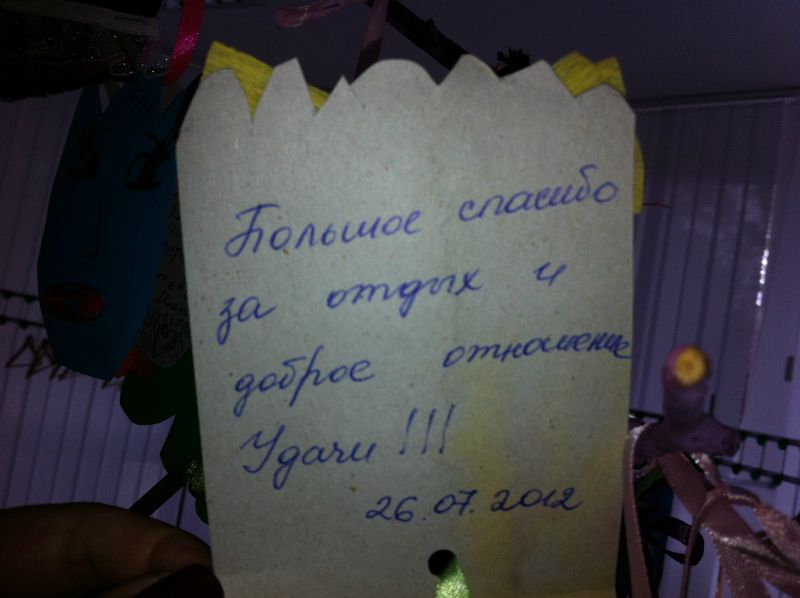 Большое спасибо
за отдых и
доброе отношение
Удачи !!!
26.07.2012